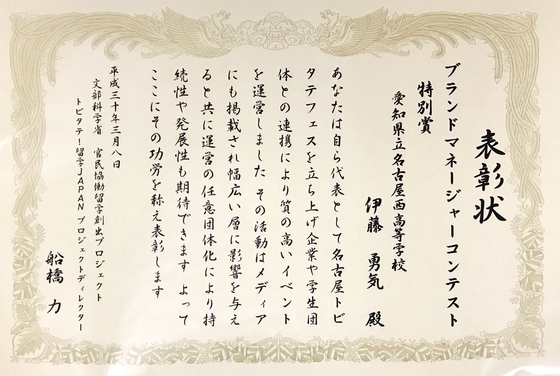 表彰状
ブランドマネージャーコンテスト
特別賞
愛知県立名古屋西高等学校
伊藤 勇気 殿
あなたは自ら代表として名古屋トビ
タテフェスを立ち上げ企業や学生団
体との連携により質の高いイベント
を運営しました その活動はメディア
にも掲載され幅広い層に影響を与え
ると共に運営の任意団体化により持
続性や発展性も期待できます よって
ここにその功労を称え表彰します
平成三十年三月八日
文部科学省 官民協働留学創出プロジェクト
トビタテ！留学JAPAN プロジェクトディレクター
船橋 力